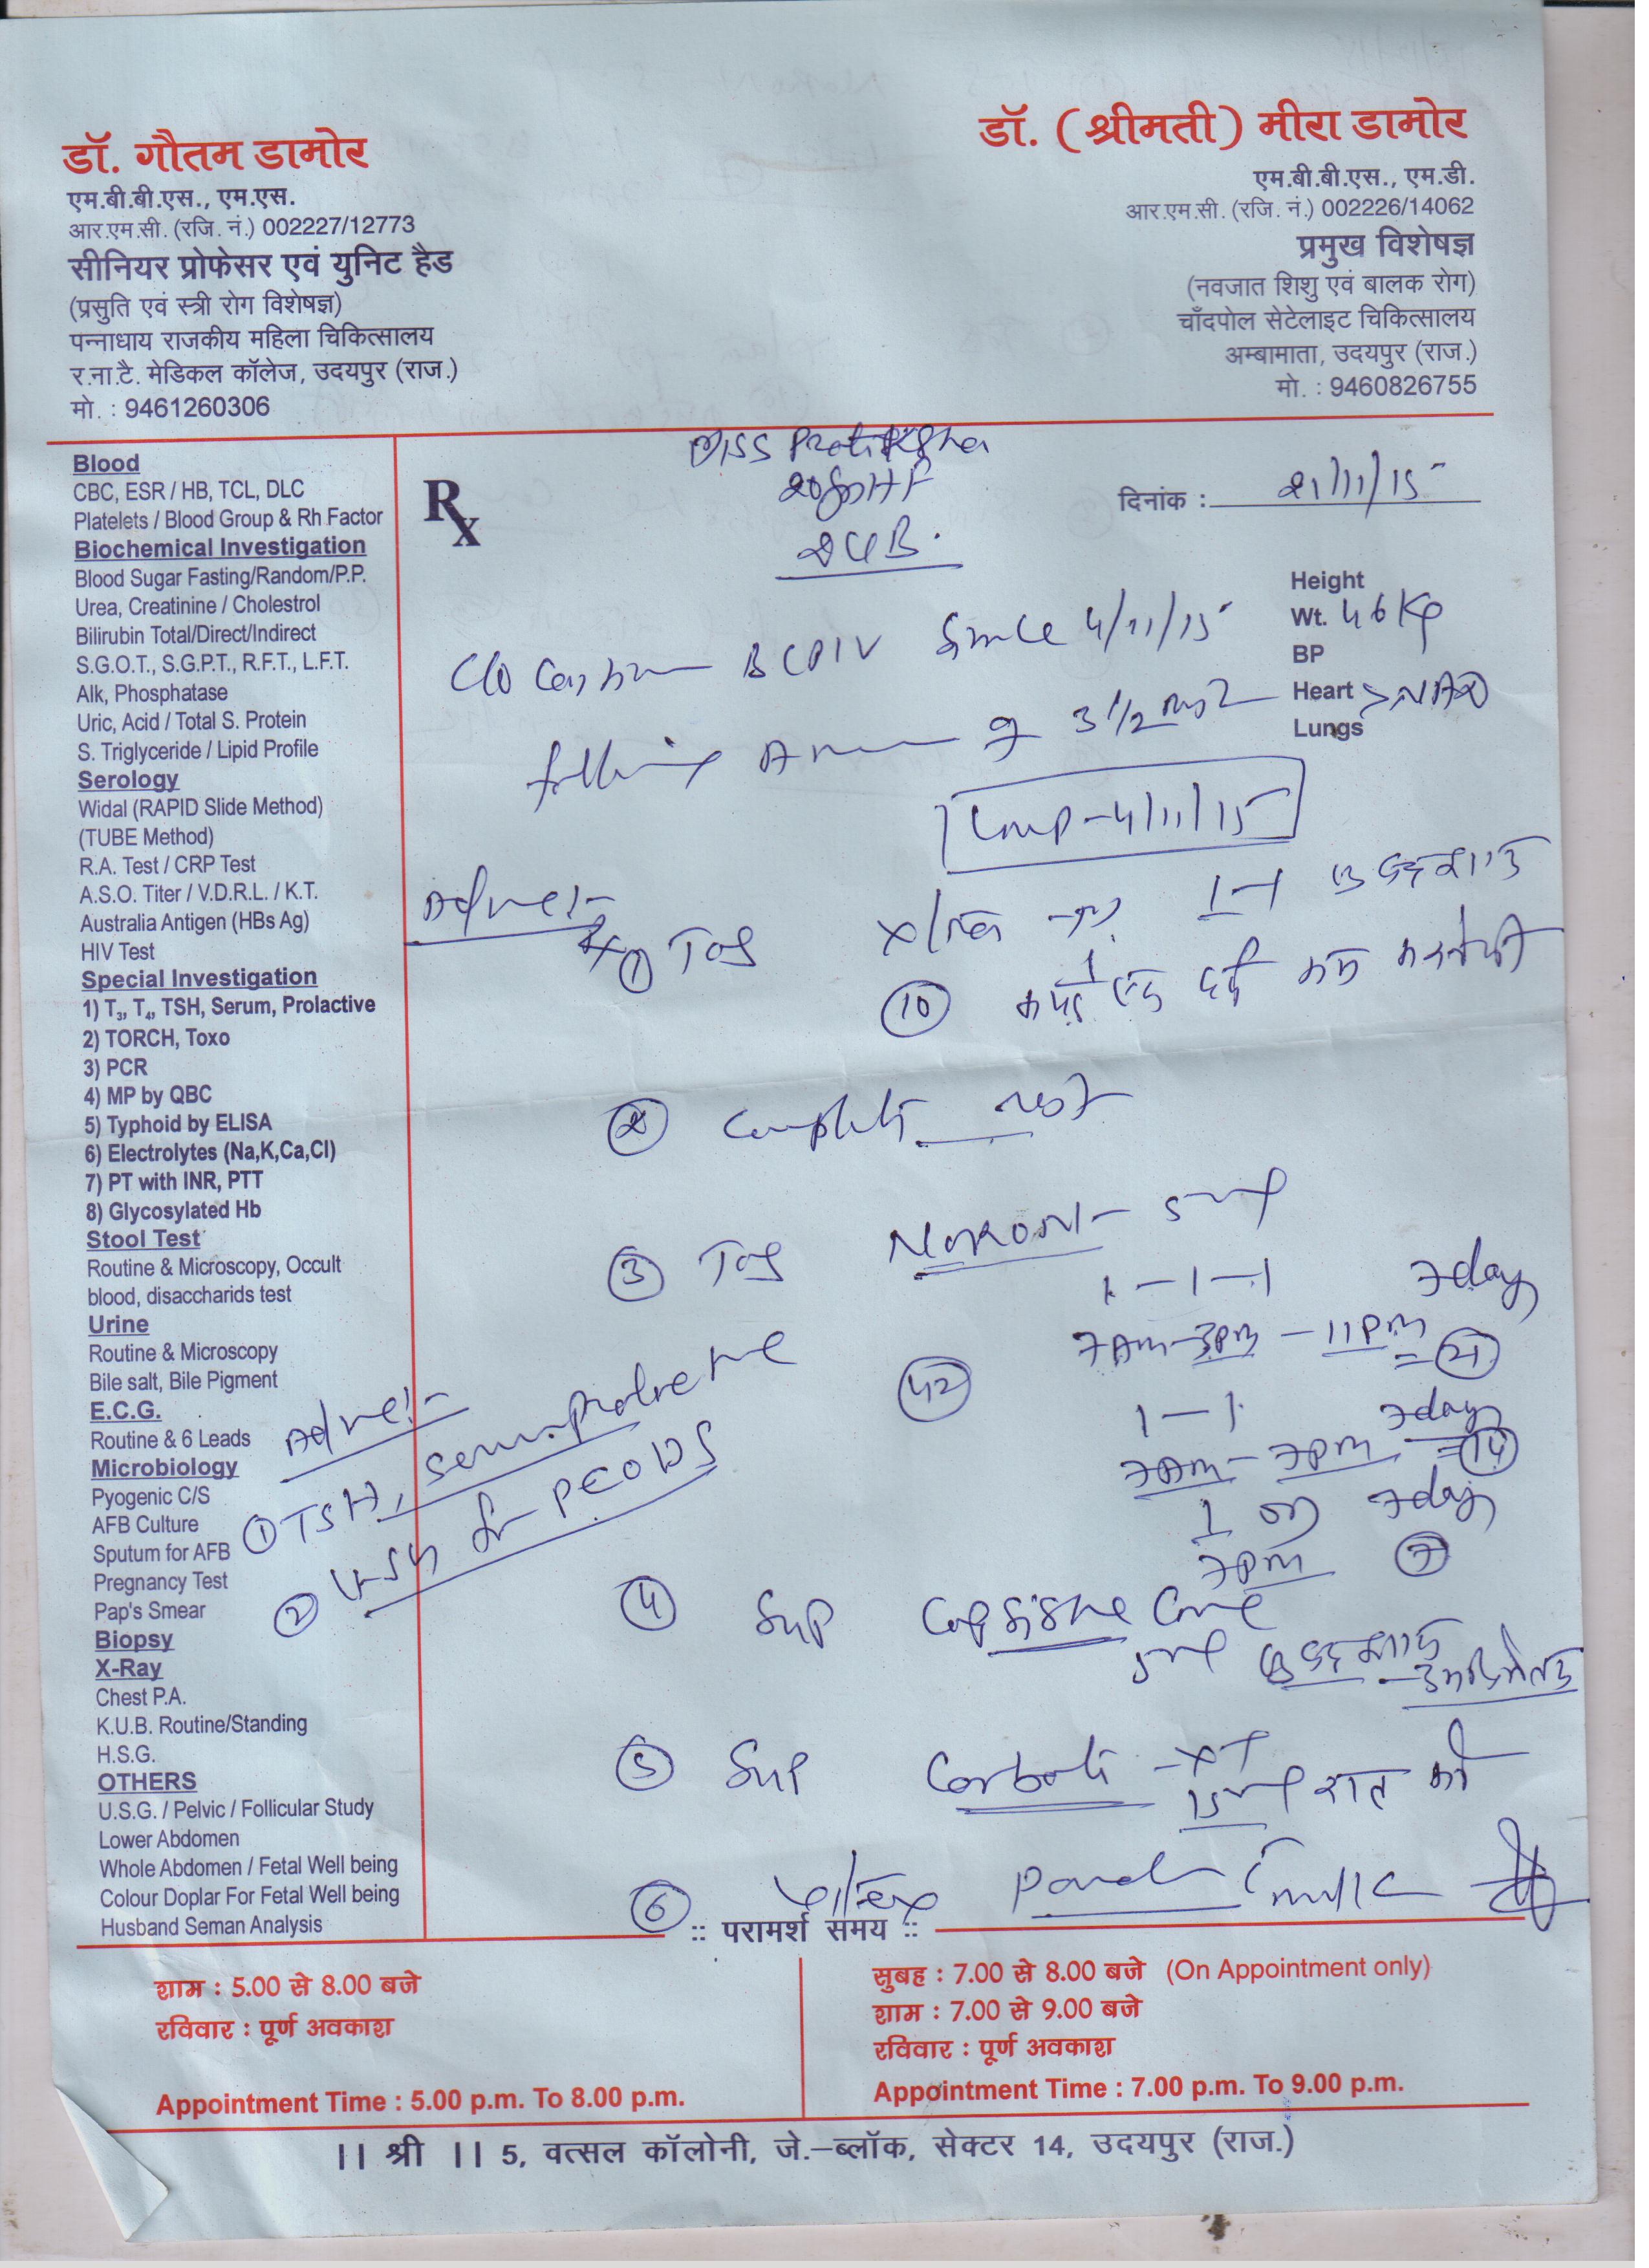 डॉ. गौतम डामोर
एम.बी.बी.एस., एम.एस.
आर.एम.सी. (रजि. नं.) 002227/12773
सीनियर प्रोफेसर एवं युनिट हैड
(प्रसुति एवं स्त्री रोग विशेषज्ञ)
पन्नाधाय राजकीय महिला चिकित्सालय
र.ना.टै. मेडिकल कॉलेज, उदयपुर (राज.)
मो. : 9461260306
डॉ. (श्रीमती) मीरा डामोर
एम.बी.बी.एस., एम.डी.
आर.एम.सी. (रजि. नं.) 002226/14062
प्रमुख विशेषज्ञ
(नवजात शिशु एवं बालक रोग)
चाँदपोल सेटेलाइट चिकित्सालय
अम्बामाता, उदयपुर (राज.)
मो. : 9460826755
Blood
CBC, ESR / HB, TCL, DLC
Platelets / Blood Group & Rh Factor
Biochemical Investigation
Blood Sugar Fasting/Random/P.P.
Urea, Creatinine / Cholestrol
Bilirubin Total/Direct/Indirect
S.G.O.T., S.G.P.T., R.F.T., L.F.T.
Alk, Phosphatase
Uric, Acid / Total S. Protein
S. Triglyceride / Lipid Profile
Serology
Widal (RAPID Slide Method)
(TUBE Method)
R.A. Test / CRP Test
A.S.O. Titer / V.D.R.L. / K.T.
Australia Antigen (HBs Ag)
HIV Test
Special Investigation
1) T3, T4, TSH, Serum, Prolactive
2) TORCH, Toxo
3) PCR
4) MP by QBC
5) Typhoid by ELISA
6) Electrolytes (Na,K,Ca,Cl)
7) PT with INR, PTT
8) Glycosylated Hb
Stool Test
Routine & Microscopy, Occult
blood, disaccharids test
Urine
Routine & Microscopy
Bile salt, Bile Pigment
E.C.G.
Routine & 6 Leads
Microbiology
Pyogenic C/S
AFB Culture
Sputum for AFB
Pregnancy Test
Pap's Smear
Biopsy
X-Ray
Chest P.A.
K.U.B. Routine/Standing
H.S.G.
OTHERS
U.S.G. / Pelvic / Follicular Study
Lower Abdomen
Whole Abdomen / Fetal Well being
Colour Doplar For Fetal Well being
Husband Seman Analysis
Rx
Miss Pratiksha
DUB.
दिनांक : 21/11/15
Height
Wt. 46 Kg
BP
Heart > NAD
Lungs
C/O BCPIV Since 4/11/15
following 3 1/2
LMP - 4/11/15
Advice:-
① Tab 1-1
⑩ दर्द
② Complete rest
③ Tab 5mg
1 - 1 - 1 7day
7Am - 3Pm - 11Pm = 21
42
1 - 1 7days
7Am - 7Pm = 14
1 7days
7Pm 7
Advice:-
① TSH, Serum Prolactine
② USG for PCODS
④ Syp
5ml
⑤ Syp - XT
15ml रात को
⑥
:: परामर्श समय ::
शाम : 5.00 से 8.00 बजे
रविवार : पूर्ण अवकाश
Appointment Time : 5.00 p.m. To 8.00 p.m.
सुबह : 7.00 से 8.00 बजे (On Appointment only)
शाम : 7.00 से 9.00 बजे
रविवार : पूर्ण अवकाश
Appointment Time : 7.00 p.m. To 9.00 p.m.
|| श्री || 5, वत्सल कॉलोनी, जे.-ब्लॉक, सेक्टर 14, उदयपुर (राज.)